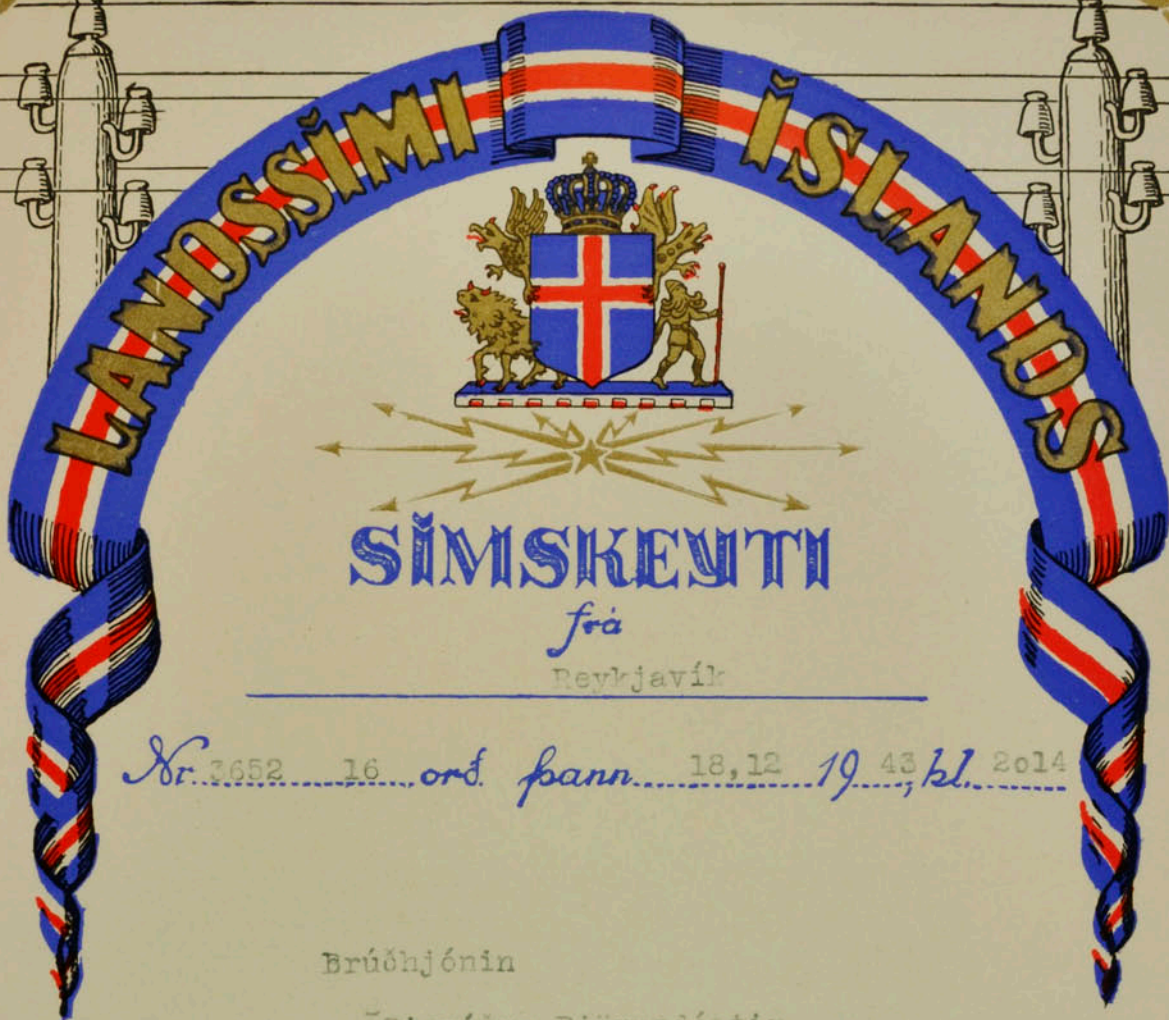 LANDSSÍMI ÍSLANDS
SÍMSKEYTI
frá
Reykjavík
Nr. 3652 16 orð þann 18,12 19 43, kl. 2014
Brúðhjónin